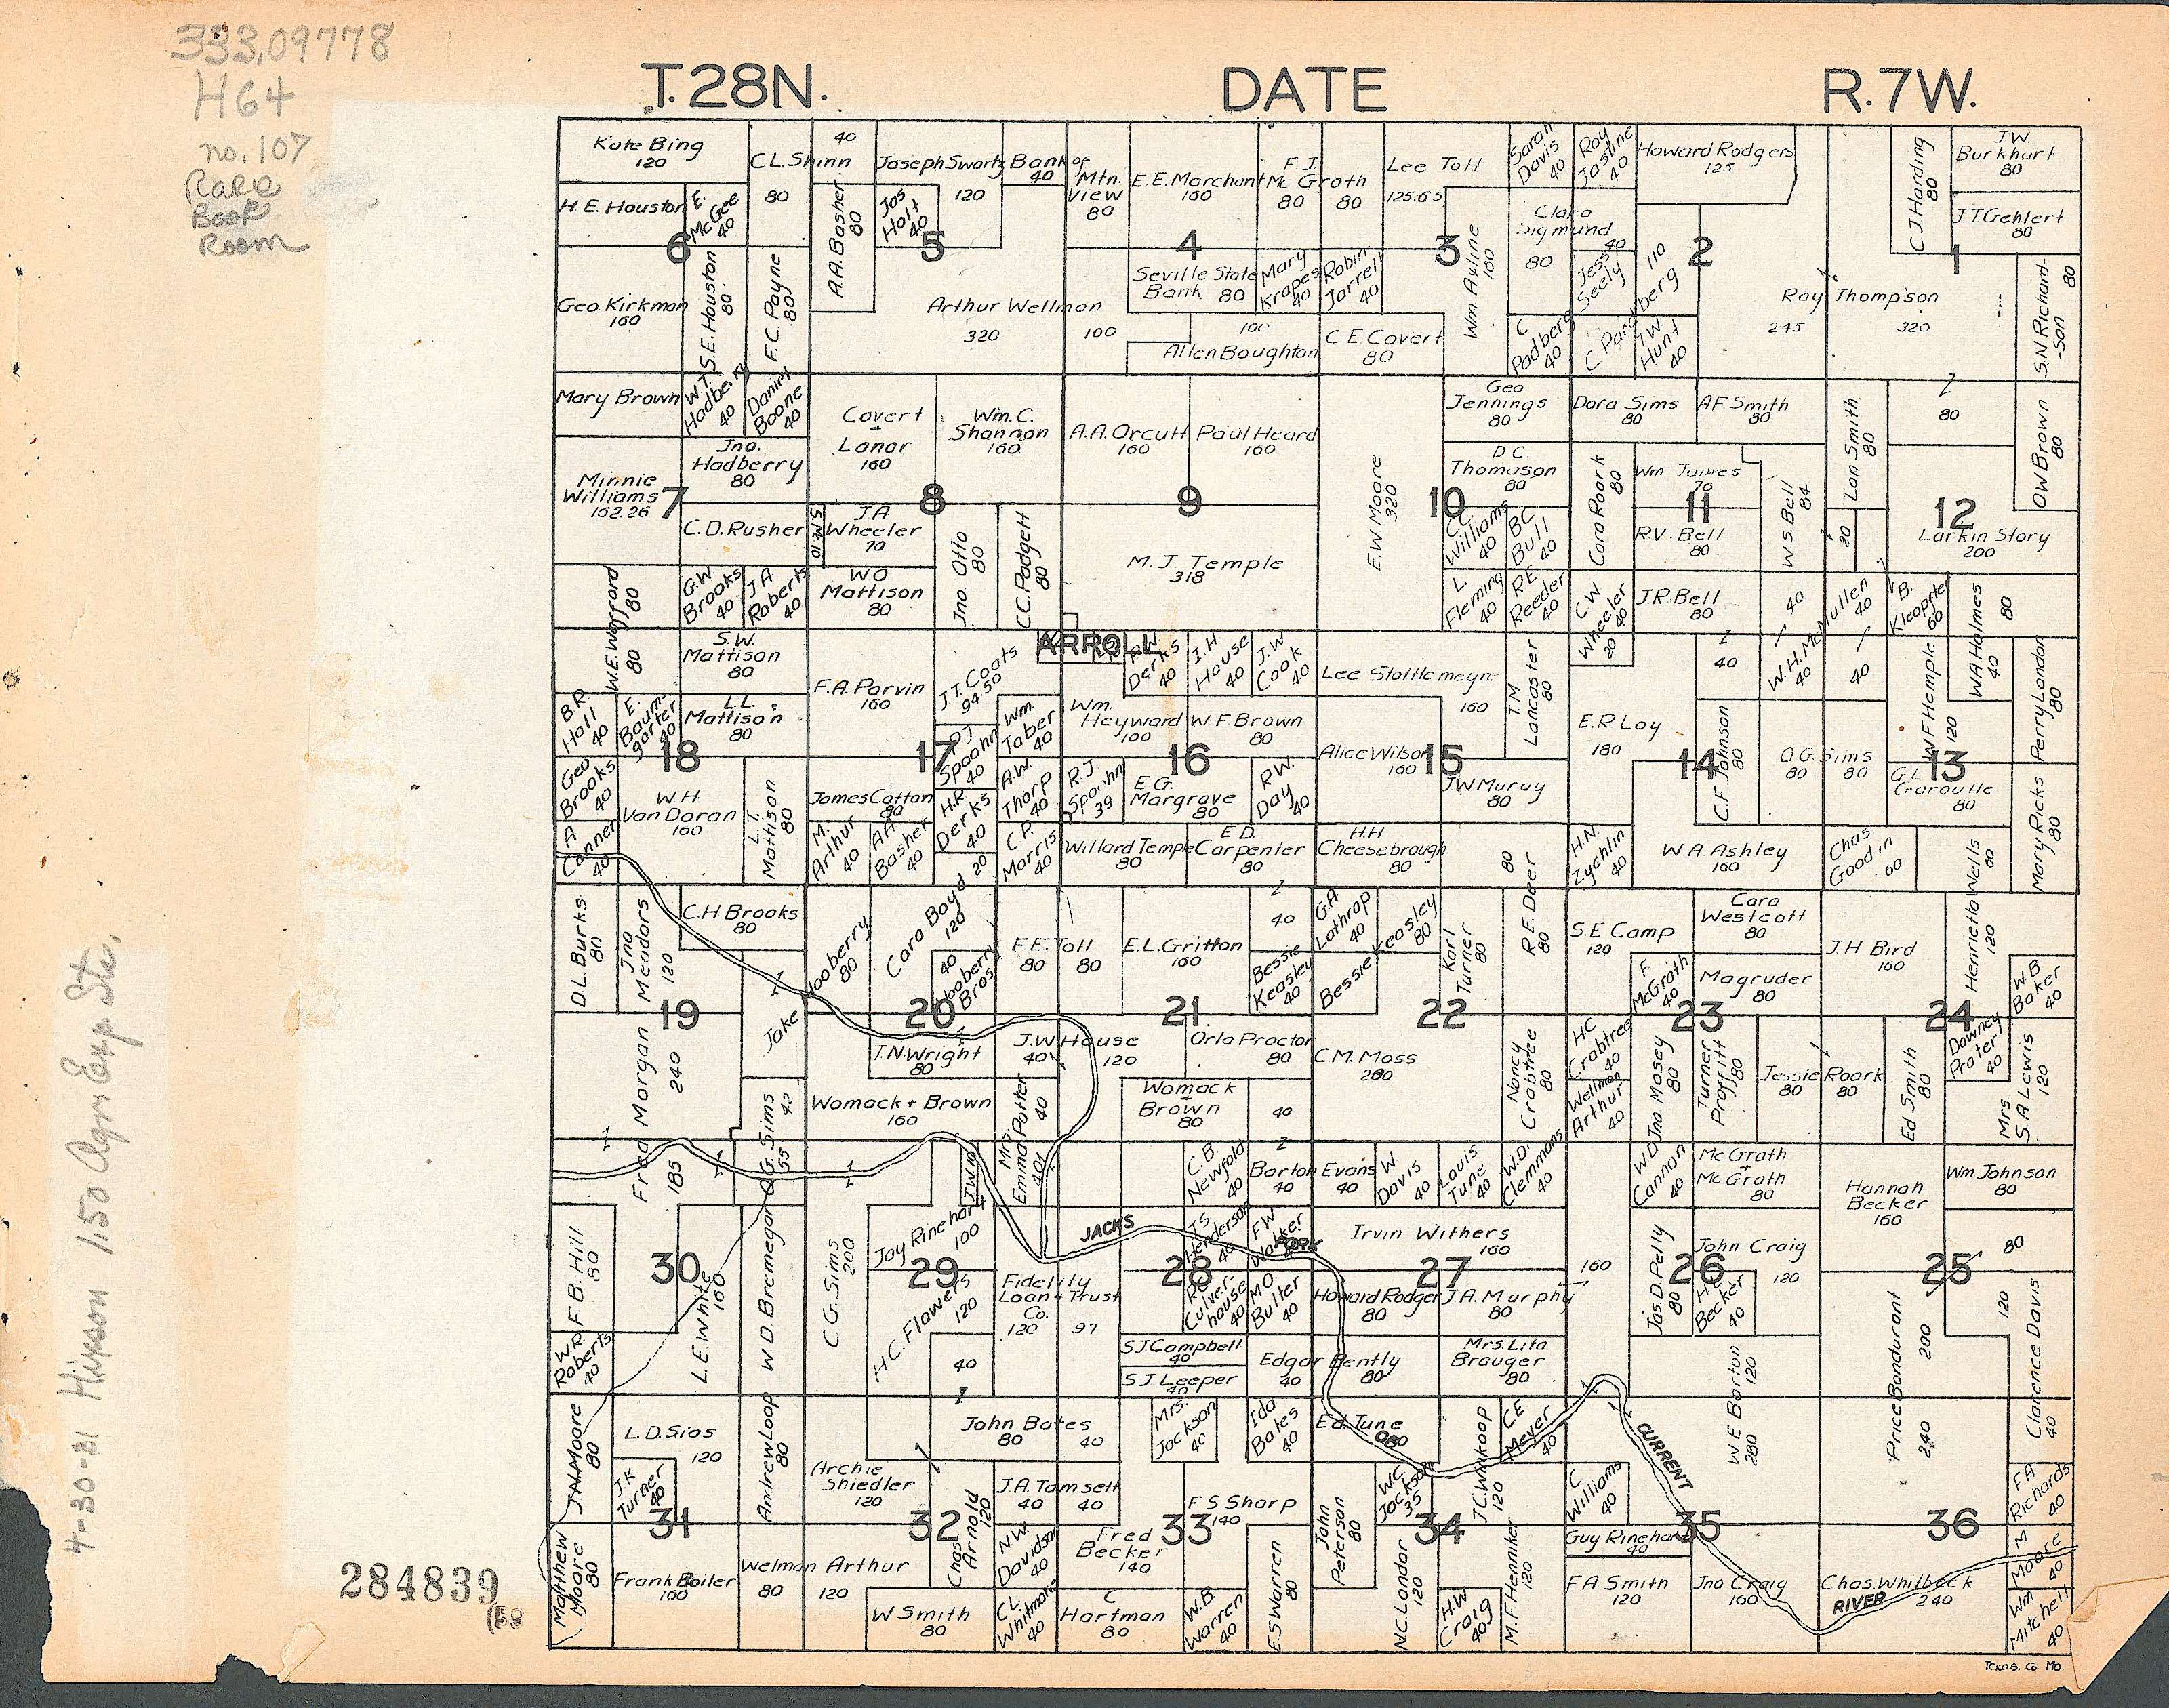 333.09778
H64
no. 107
Rare
Book
Room
T. 28N.
DATE
R. 7W.
Kate Bing
120
C.L. Shinn
80
40
Joseph Swartz
120
Bank of Mtn. View
40
80
E.E. Marchant
160
F J. Mc Grath
80
80
Lee Toll
125.65
Sarah Davis
40
Ray Jasline
40
Howard Rodgers
125
C J. Harding
80
J.W. Burkhart
80
H.E. Houston
E. McGee
40
A.A. Basher
80
Jos Holt
40
J T Gehlert
80
6
5
4
3
2
1
Geo. Kirkman
160
S.E. Houston
80
F.C. Payne
80
Arthur Wellman
320
100
Seville State Bank
80
Mary Krapes
40
Robin Jarrell
40
Wm Axline
160
Clara Sigmund
40
80
Jess Seely
C Pardberg
110
Ray Thompson
245
320
S.N. Richard-
-son
80
100
Allen Boughton
C E Covert
80
C Padberg
40
T.W. Hunt
40
Mary Brown
W.T. Hadberry
40
Daniel Boone
40
Covert + Lanar
160
Wm. C. Shannon
160
A.A. Orcutt
160
Paul Heard
160
E.W. Moore
320
Geo Jennings
80
Dora Sims
80
A F Smith
80
Lon Smith
80
80
O W Brown
80
Minnie Williams
162.26
Jno. Hadberry
80
D.C. Thomason
80
Cora Roark
80
Wm James
76
W S. Bell
84
7
8
9
10
11
12
C.D. Rusher
S.N.M.
10
J A Wheeler
70
Jno Otto
80
C.C. Padgett
80
M. J. Temple
318
C.C. Williams
40
B C Bull
40
R.V. Bell
80
20
Larkin Story
200
W.E. Wofford
80
80
G.W. Brooks
40
J A Roberts
40
W O Mattison
80
L. Fleming
40
R E Reeder
40
C W Wheeler
40
20
J.R. Bell
80
40
W.H. McMullen
40
40
40
B. Kleopfer
60
W A Holmes
80
40
ARROLL
S.W. Mattison
80
F.A. Parvin
160
J.T. Coats
94.50
Derks
40
I.H House
40
J.W Cook
40
Lee Stottlemeyre
160
T.M Lancaster
80
40
W F Hemple
120
Perry London
80
B.R. Hall
40
E. Baumgarter
40
L.L. Mattison
80
P J Spoohn
40
Wm. Taber
40
Wm. Heyward
100
W F. Brown
80
Alice Wilson
160
E.R Loy
180
C.F Johnson
80
O.G. Sims
80
80
18
17
16
15
14
13
Geo Brooks
40
W.H. Van Doran
160
L.T. Mattison
80
James Cotton
80
H.R. Derks
40
A.W. Thorp
40
R.J. Spoohn
39
E.G. Margrave
80
R.W. Day
40
J W Muray
80
G.L Garoutte
80
Mary Ricks
80
A Conner
40
M. Arthur
40
A A Basher
40
20
C.P. Morris
40
Willard Temple
80
E.D. Carpenter
80
H.H Cheesebrough
80
H.N. Zychlin
40
W A. Ashley
160
Chas Goodin
60
D.L. Burks
80
Jno Mendors
120
C.H. Brooks
80
Hooberry
80
Cora Boyd
120
40
Hooberry Bros
F.E. Toll
80
80
E.L. Gritton
160
40
G.A Lothrop
40
Bessie Keasley
80
Bessie Keasley
40
Karl Turner
80
R.E. Deer
80
80
S.E Camp
120
Cora Westcott
80
J.H Bird
160
Henrietta Wells
60
120
F. McGrath
40
Magruder
80
W B Baker
40
19
20
21
22
23
24
Fred Morgan
240
185
Jake
T.N. Wright
80
J.W House
40
120
Orla Proctor
80
C.M. Moss
280
Nancy Crabtree
80
H C Crabtree
40
Jno Mosey
80
Turner Proffitt
80
Jessie Roark
80
80
Ed Smith
80
Downey Prater
40
Mrs S.A Lewis
120
O.G. Sims
42
55
Womack + Brown
160
Mrs. Emma Potter
40
40
Womack + Brown
80
40
Wellman Arthur
40
J W
10
C.B. Newfold
40
Barton Evans
40
40
W Davis
40
Louis Tune
40
W.D. Clemmons
40
W.D. Cannon
40
Mc Grath + Mc Grath
80
Hannah Becker
160
Wm Johnson
80
F.B. Hill
80
L.E. White
160
W D. Bremegar
C.G. Sims
200
Jay Rinehart
100
JACKS
FORK
T S Henderson
40
F W Walker
Irvin Withers
160
160
Jas. D. Pelly
80
John Craig
120
80
30
29
28
27
26
25
H.C. Flowers
120
40
Fidelity Loan + Trust Co.
120
97
Culverhouse
40
M.O. Butler
40
Howard Rodger
80
J.A. Murphy
80
Becker
40
Price Bondurant
200
240
120
Clarence Davis
40
W.R Roberts
40
S J Campbell
40
S J Leeper
40
Edgar Bently
40
80
Mrs. Lita Brauger
80
W E Barton
120
280
J.H. Moore
80
L.D. Sias
120
Andrew Loop
80
John Bates
80
40
Mrs. Jackson
40
Ida Bales
40
Ed Tune
J.C. Winkoop
120
C E Meyer
40
CURRENT
J.K Turner
40
Archie Shiedler
120
Chas Arnold
120
J.A. Tamsett
40
40
F S Sharp
140
John Peterson
80
W C Jackson
35
C Williams
40
F A Richards
40
31
32
33
34
35
36
Matthew Moore
80
Frank Boiler
160
Welman Arthur
80
120
N.W. Davidson
40
Fred Becker
140
E.S Warren
80
N.C. Londar
120
M.F Henniker
120
Guy Rinehart
40
M Moore
40
W Smith
80
C L Whitmore
40
C Hartman
80
W.B Warren
40
H.W Craig
40
F A Smith
120
Jno Craig
160
Chas. Whitbeck
240
RIVER
Wm Mitchell
40
Texas. Co Mo
4-30-31 Hixson 1.50 Agri Exp. Sta.
284839